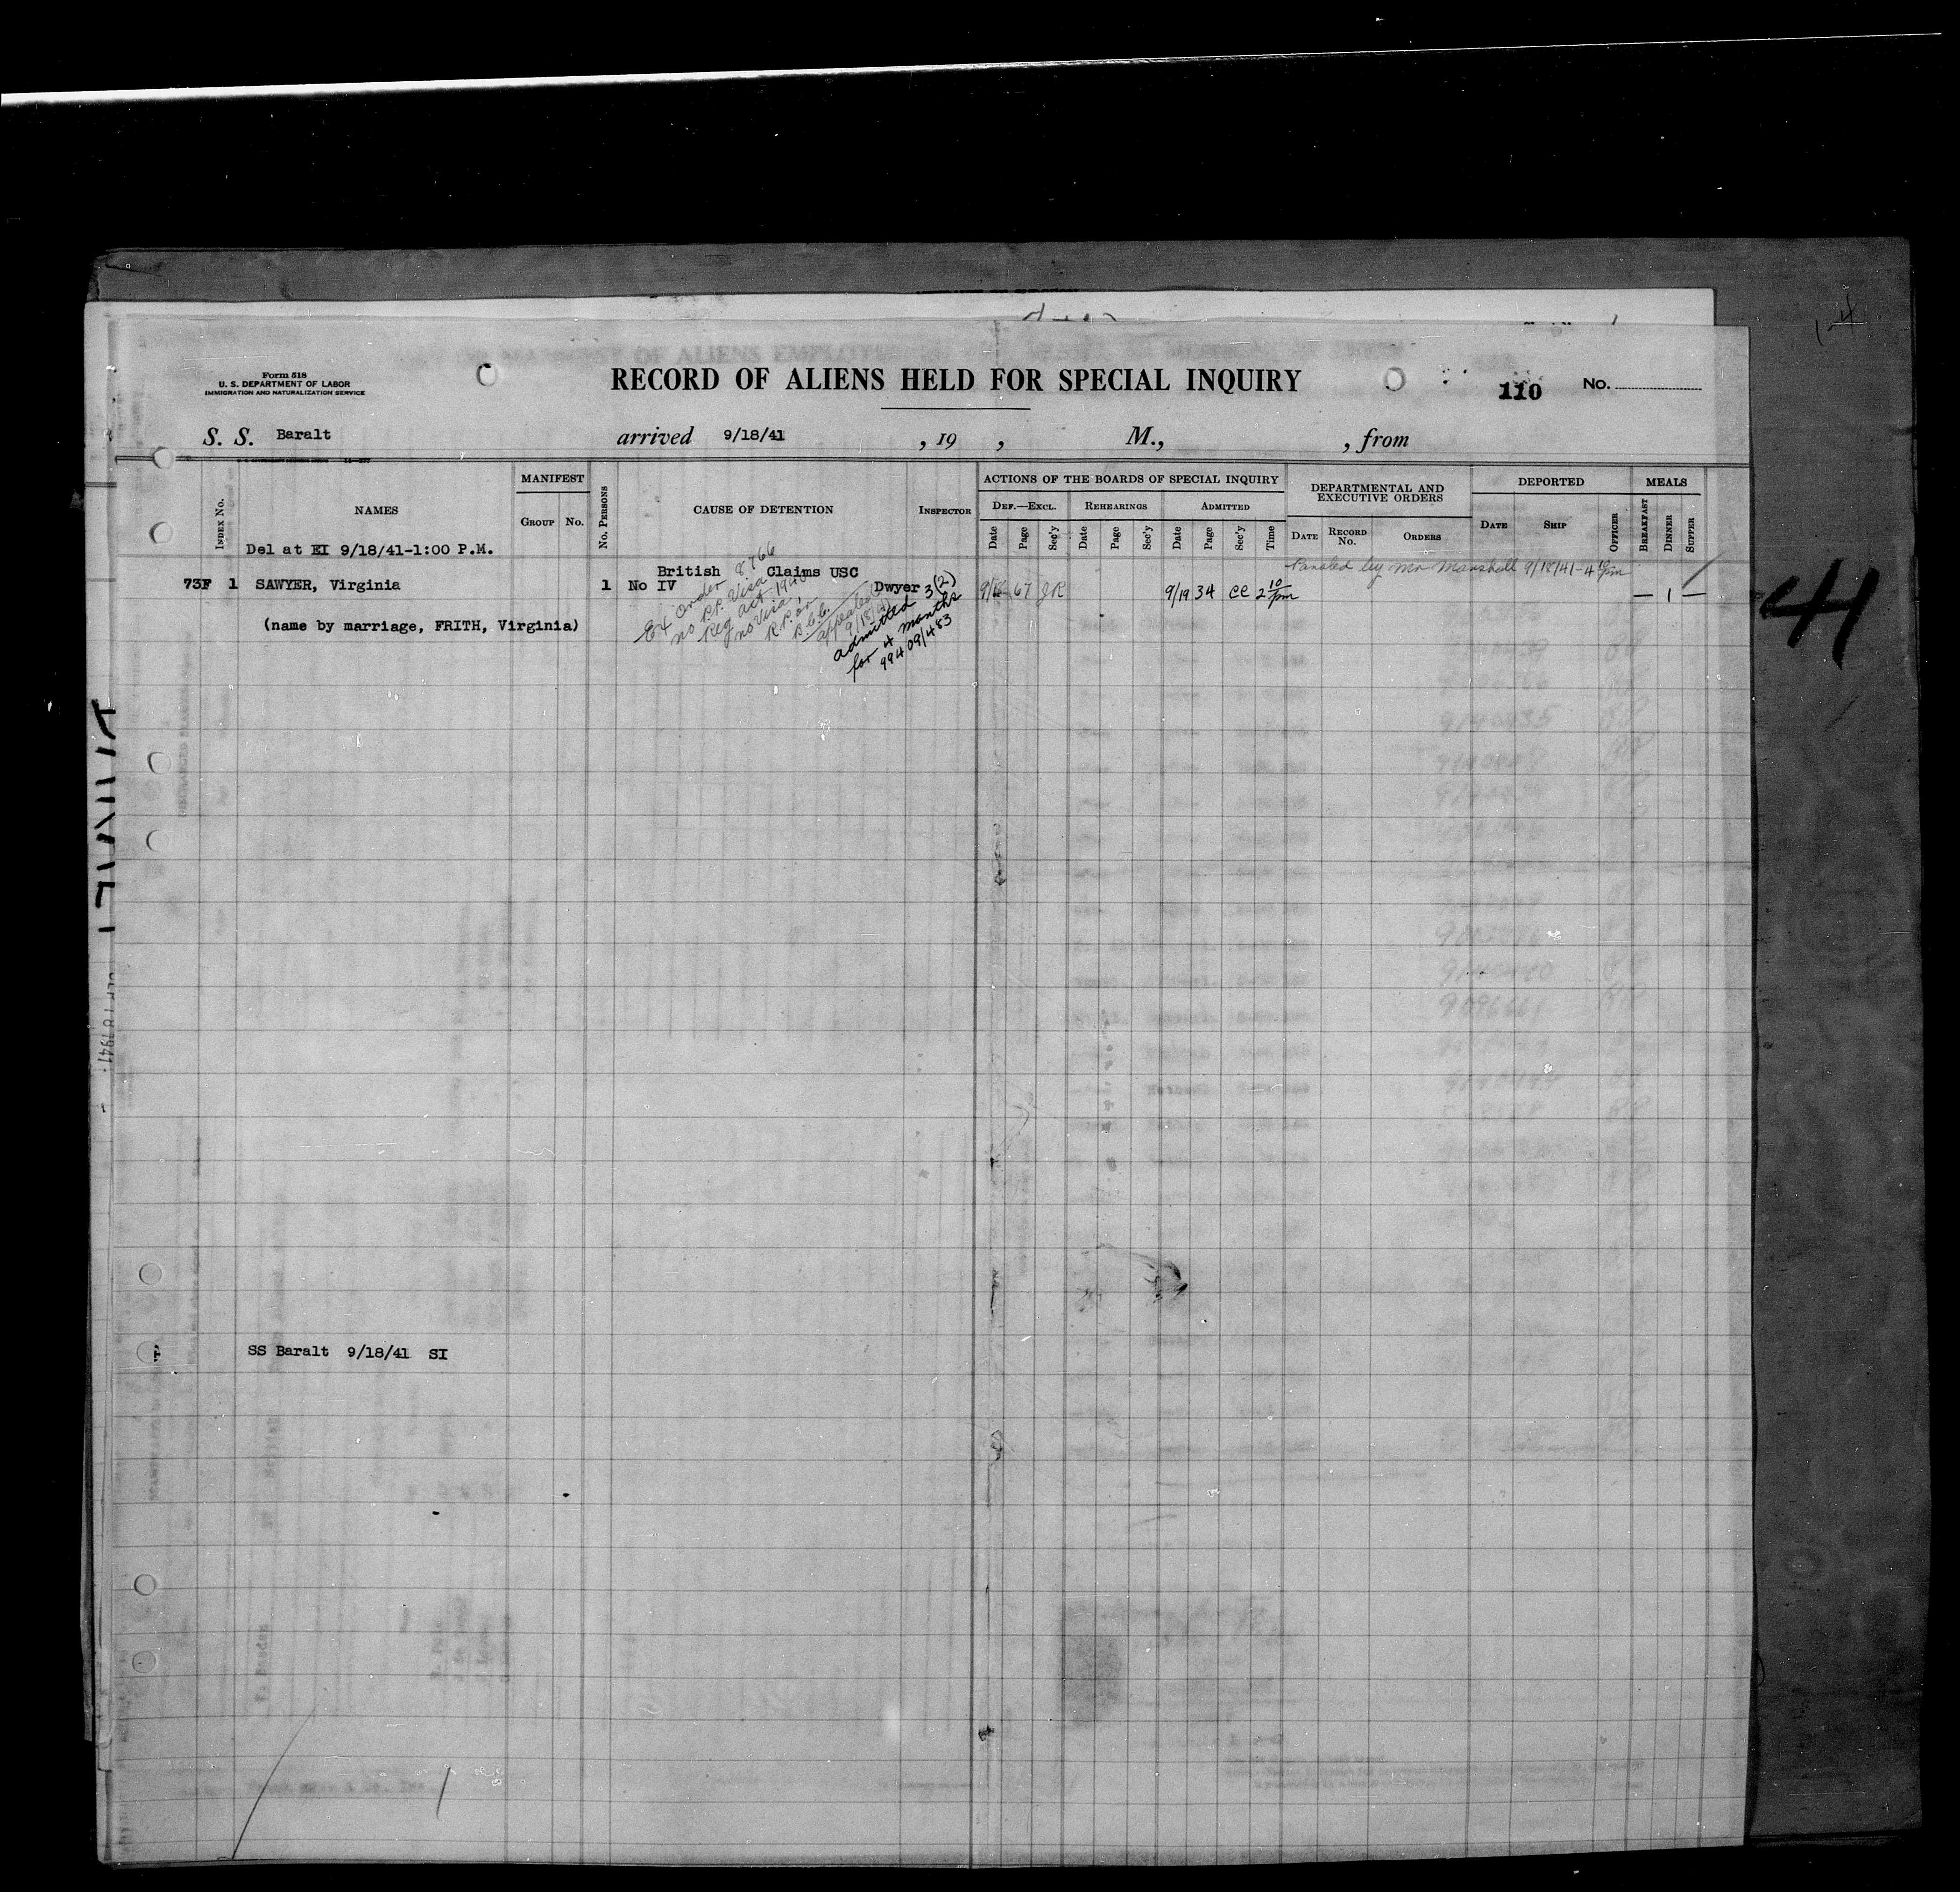 Form 518
U. S. DEPARTMENT OF LABOR
IMMIGRATION AND NATURALIZATION SERVICE
RECORD OF ALIENS HELD FOR SPECIAL INQUIRY
110 No.
S. S. Baralt arrived 9/18/41 , 19 , M., , from
Index No.
NAMES
MANIFEST
Group No.
No. Persons
CAUSE OF DETENTION
Inspector
ACTIONS OF THE BOARDS OF SPECIAL INQUIRY
Def.—Excl. Rehearings Admitted
Date Page Sec'y Date Page Sec'y Date Page Sec'y Time
DEPARTMENTAL AND
EXECUTIVE ORDERS
Date Record No. Orders
DEPORTED
Date Ship Officer
MEALS
Breakfast Dinner Supper
Del at EI 9/18/41-1:00 P.M.
Paroled by Mr Marshall 9/18/41-4 10/pm
British Claims USC
73F 1 SAWYER, Virginia 1 No IV Dwyer 3(2) 9/18 67 JR 9/19 34 CC 2 10/pm — 1 —
(name by marriage, FRITH, Virginia)
Ex Order 8766
no P.P. Visa
Reg act 1940
no Visa,
R.P. or
B.C.C.
appealed
9/18/41
admitted
for 4 months
99409/483
SS Baralt 9/18/41 SI
41